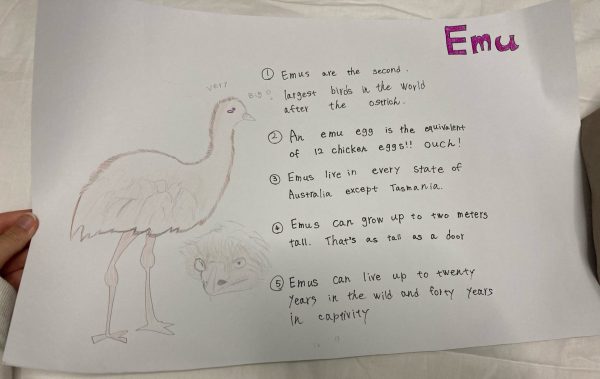 Emu
very
BIG!
① Emus are the second.
largest birds in the world
after the ostrich.
② An emu egg is the equivalent
of 12 chicken eggs!! ouch!
③ Emus live in every state of
Australia except Tasmania.
④ Emus can grow up to two meters
tall. That's as tall as a door
⑤ Emus can live up to twenty
years in the wild and forty years
in captivity